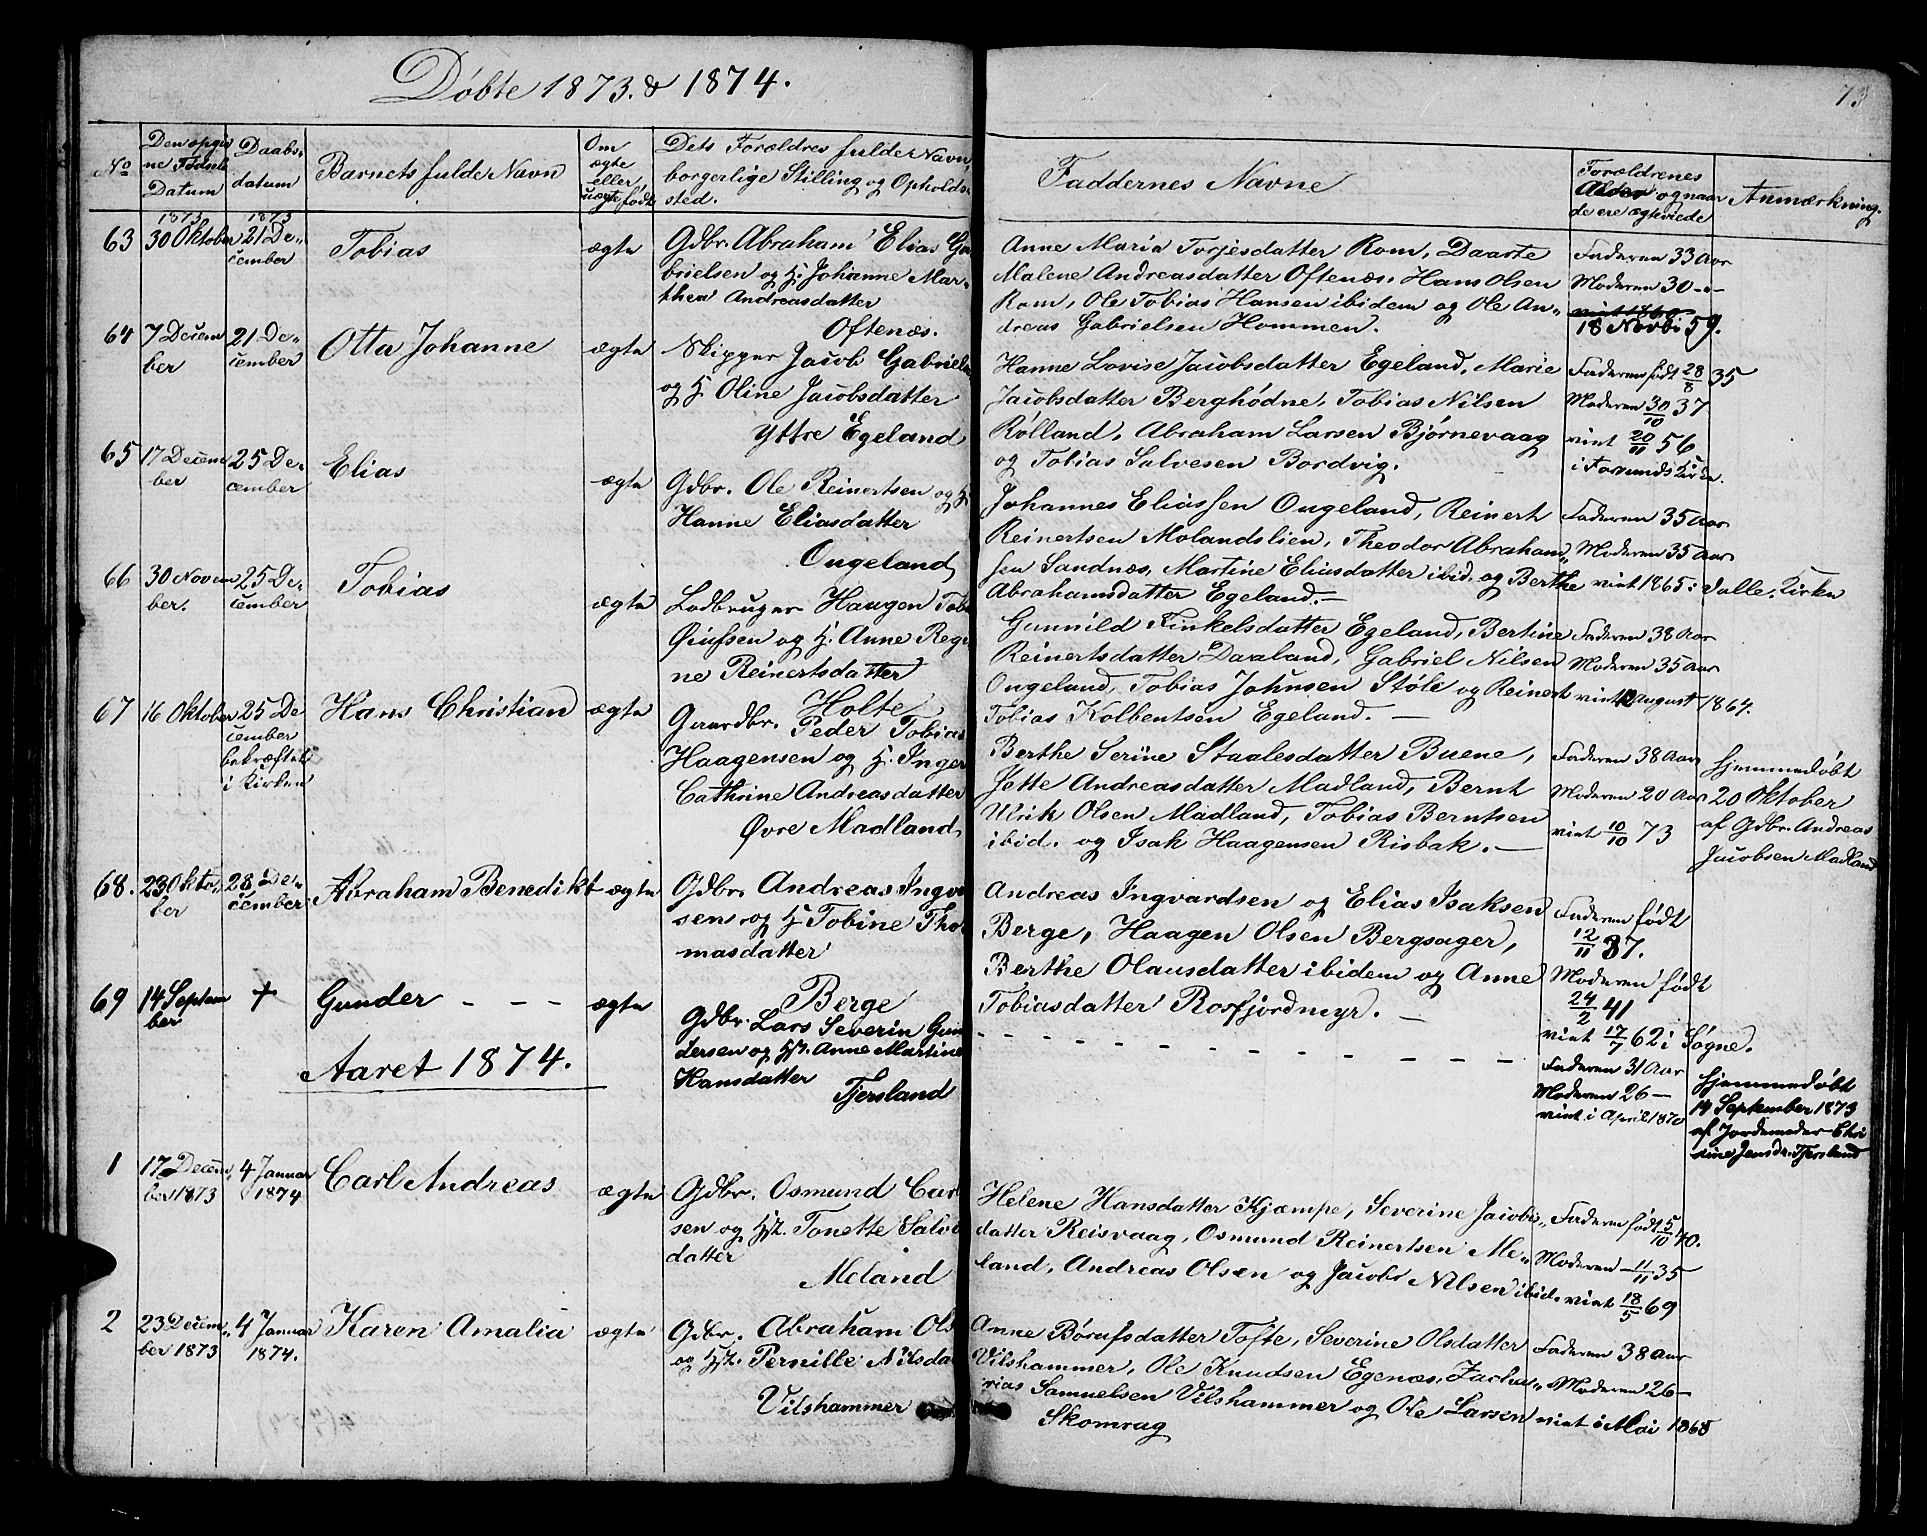 Döbte 1873. & 1874.
73
No
Den opgiv
ne Fødsels
Datum
Daabs-
datum
Barnets fulde Navn
Om
ægte
eller
uægte født
Dets Forældres fulde Navn,
borgerlige Stilling og Opholds
sted.
Faddernes Navne
Forældrenes
Alder og naar
de ere ægteviede
Anmærkning.
63
1873
30 Oktober
1873
21 De-
cember
Tobias
ægte
Gdbr. Abraham Elias Ga
brielsen og H. Johanne Mar-
thea Andreasdatter
Oftenæs.
Anne Maria Torjesdatter Rom, Daarte
Malene Andreasdatter Oftenæs, Hans Olsen
Rom, Ole Tobias Hansen ibidem og Ole An-
dreas Gabrielsen Hommen.
Faderen 33 Aar
Moderen 30 - -
viet 1860
18 Novbr 59.
64
7 Decem
ber
21 De-
cember
Otta Johanne
ægte
Skipper Jacob Gabriels
og H. Oline Jacobsdatter
Yttre Egeland
Hanne Lovise Jacobsdatter Egeland, Marie
Jacobsdatter Berghödne, Tobias Nilsen
Rölland, Abraham Larsen Bjørnevaag
og Tobias Salvesen Bordvig.
Faderen født 28/8 35
Moderen 30/10 37
viet 20/11 56
i Farsunds Kirke.
65
17 Decem
ber
25 De-
cember
Elias
ægte
Gdbr. Ole Reinertsen og H
Hanne Eliasdatter
Ougeland
Johannes Eliassen Ougeland, Reinert
Reinertsen Molandslien, Theodor Abraham
sen Sandnæs, Martine Eliasdatter ibid. og Berthe
Abrahamsdatter Egeland.
Faderen 35 Aar
Moderen 35 Aar
viet 1865 i Valle Kirke
66
30 Novem
ber.
25 De-
cember
Tobias
ægte
Lodbruger Haagen Tob
Øiufsen og H. Anne Regi
ne Reinertsdatter
Holte
Gunnild Tinkelsdatter Egeland, Bertine
Reinertsdatter Daaland, Gabriel Nilsen
Ougeland, Tobias Johnsen Støle og Reinert
Tobias Kolbentsen Egeland.
Faderen 38 Aar
Moderen 35 Aar
viet August 1864.
67
16 Oktober
25 De
cember
bekræftet
i Kirken
Hans Christian
ægte
Gaardbr. Peder Tobias
Haagensen og H. Inger
Cathrine Andreasdatter
Øvre Madland
Berthe Serine Staalesdatter Buene,
Jette Andreasdatter Madland, Bernt
Ulrik Olsen Madland, Tobias Berntsen
ibid. og Isak Haagensen Risbak.
Faderen 38 Aar
Moderen 20 Aar
viet 10/10 73
Hjemmedøbt
20 Oktober
af Gdbr. Andreas
Jacobsen Madland
68.
23 Okto-
ber
28 De-
cember
Abraham Benedikt
ægte
Gdbr. Andreas Ingva
sen og H Tobine Tho
masdatter
Berge
Andreas Ingvardsen og Elias Isaksen
Berge, Haagen Olsen Bergsager,
Berthe Olausdatter ibidem og Anne
Tobiasdatter Rosfjordmyr.
Faderen født
12/11 37.
Moderen født
24/2 41
viet 17/7 62 i Søgne.
69
14 Septem
ber
+
Gunder - - -
ægte
Gdbr. Lars Severin Gun
dersen og H. Anne Martine
Hansdatter
Tjersland
Faderen 31 Aar
Moderen 26 -
viet i April 1870
Hjemmedøbt
14 September 1873
af Jordemoder Chri
stine Jensdr. Tjersland
Aaret 1874.
1
17 Decem-
ber 1873
4 Januar
1874
Carl Andreas
ægte
Gdbr. Osmund Carl
sen og H. Tonette Salve
datter
Meland
Helene Hansdatter Kjæmpe, Severine Jacobs-
datter Reisvaag, Osmund Reinertsen Me-
land, Andreas Olsen og Jacob Nilsen ibid.
Faderen født 5/10 40.
Moderen - 11/11 35
viet 18/5 69
2
23 Decem-
ber 1873
4 Januar
1874.
Karen Amalia
ægte
Gdbr. Abraham Ols
og H. Pernille Nilsda
Vilshammer
Anne Börufsdatter Tofte, Severine Olsdatter
Vilshammer, Ole Knudsen Egenæs, Zacha-
rias Samuelsen Vilshammer og Ole Larsen
Skomrag
Faderen 38 Aar
Moderen 26 -
viet i Mai 1868